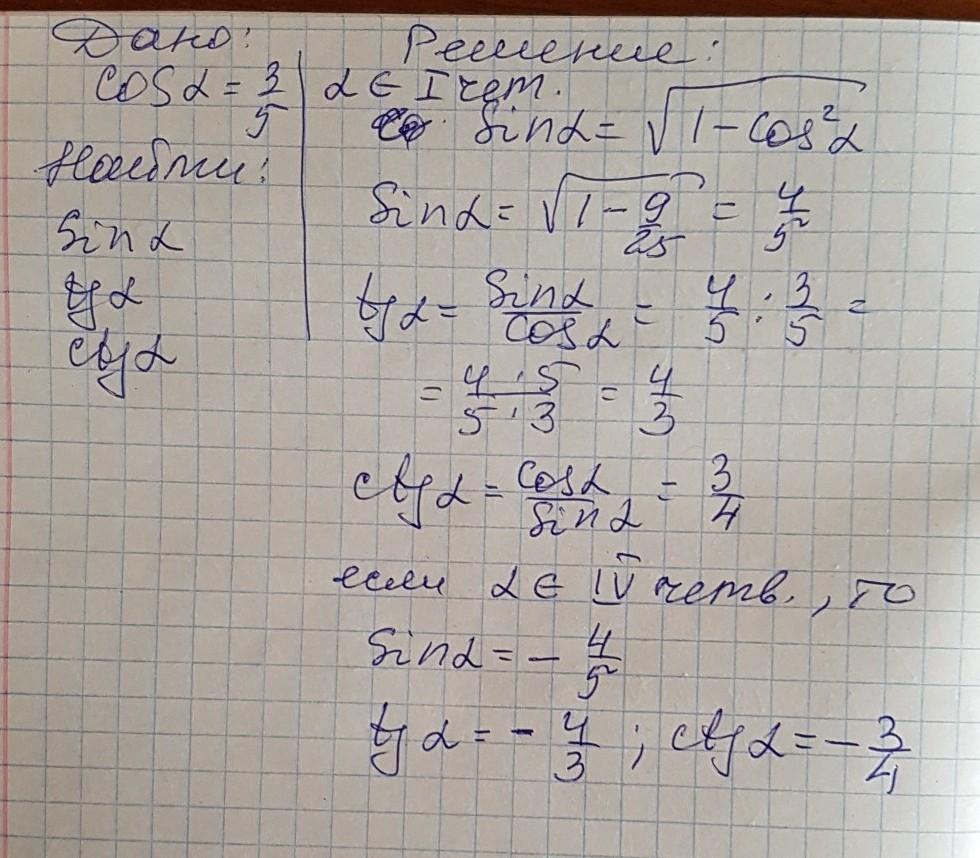 Дано:
cos α = 3/5
Найти:
sin α
tg α
ctg α
Решение:
α ∈ I чет.
sin α = √(1 − cos² α)
sin α = √(1 − 9/25) = 4/5
tg α = sin α / cos α = 4/5 : 3/5 =
= 4 · 5 / 5 · 3 = 4/3
ctg α = cos α / sin α = 3/4
если α ∈ IV четв., то
sin α = − 4/5
tg α = − 4/3 ; ctg α = − 3/4